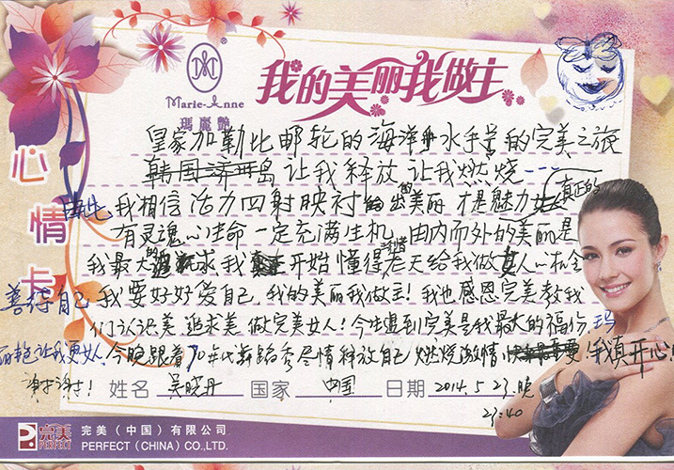 Marie-Anne
瑪麗艷
我的美丽我做主
心情卡
皇家加勒比邮轮的海洋水手号的完美之旅
韩国济州岛 让我释放 让我燃烧
我相信活力四射映衬出的美丽才是魅力 真正的
有灵魂心生命一定充满生机 由内而外的美丽是
我最大的追求 我 开始懂得 老天给我做女人一次
善待自己 我要好好爱自己,我的美丽我做主!我也感恩完美教我
们认识美 追求美 做完美女人!今生遇到完美是我最大的福份 玛
丽艳让我更女人 今晚跟着70年代舞 秀尽情释放自己 燃烧激情 我真开心
谢谢谢谢! 姓名 吴晓丹 国家 中国 日期 2014.5.27.晚
27:40
完美 PERFECT 完美(中国)有限公司
PERFECT (CHINA) CO.,LTD.